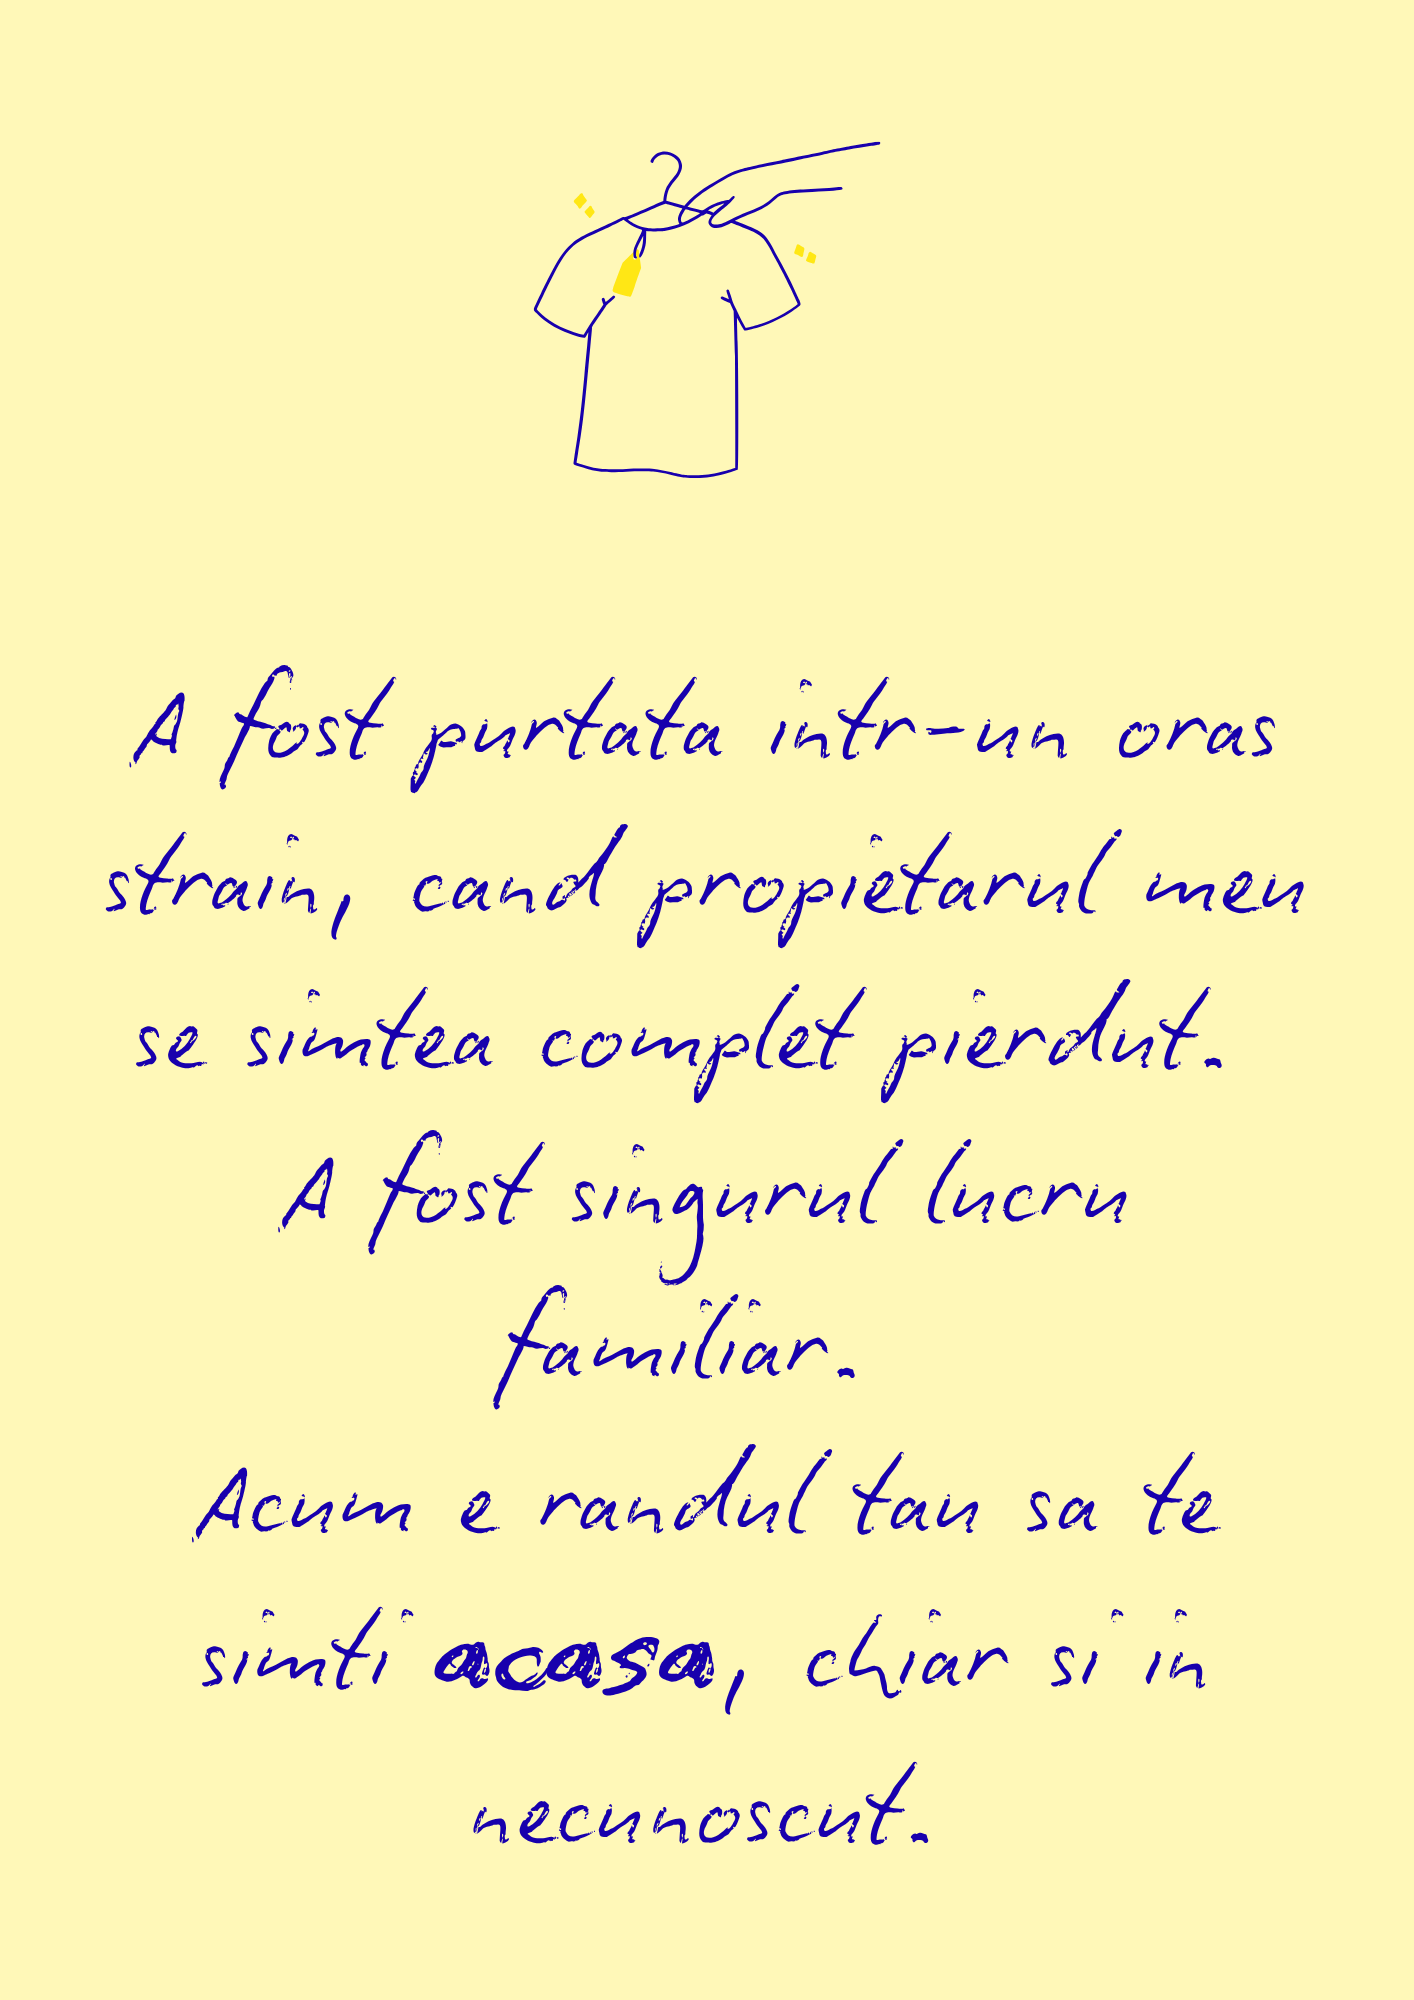 A fost purtata intr-un oras
strain, cand propietarul meu
se simtea complet pierdut.
A fost singurul lucru
familiar.
Acum e randul tau sa te
simti acasa, chiar si in
necunoscut.